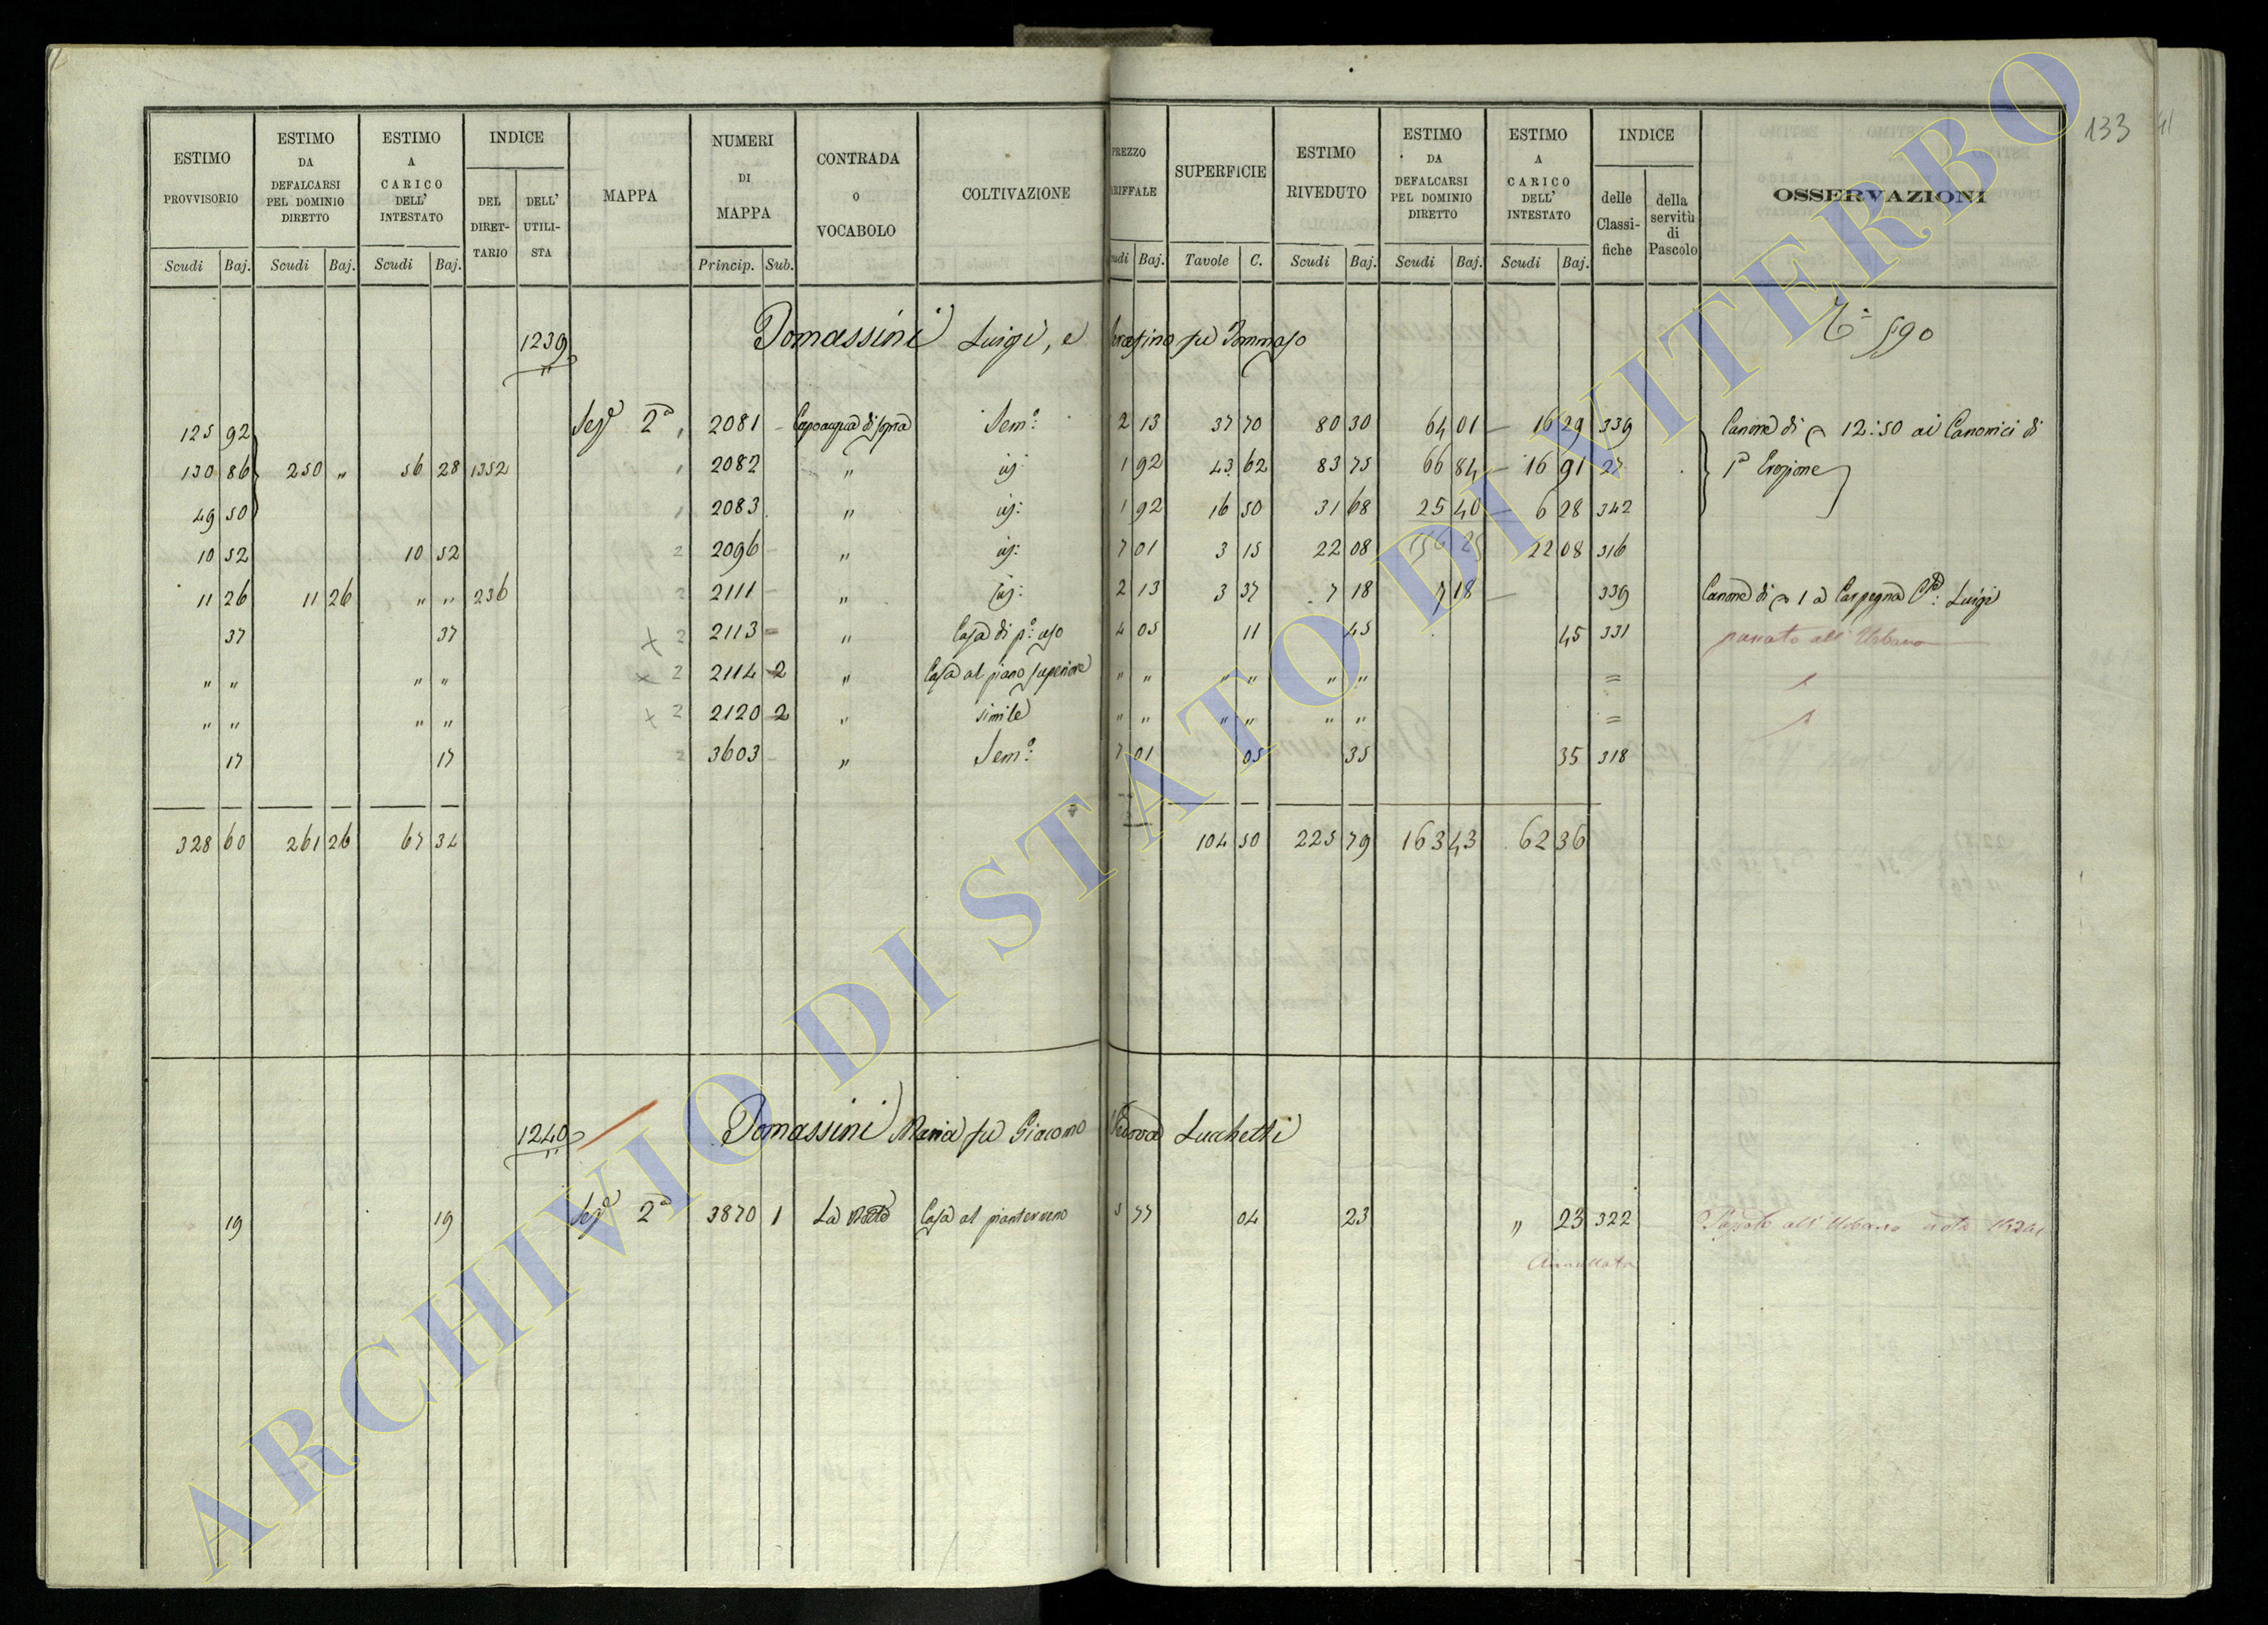 133 41
ESTIMO PROVVISORIO Scudi Baj.
ESTIMO DA DEFALCARSI PEL DOMINIO DIRETTO Scudi Baj.
ESTIMO A CARICO DELL' INTESTATO Scudi Baj.
INDICE DEL DIRET-TARIO DELL' UTILI-STA
MAPPA
NUMERI DI MAPPA Princip. Sub.
CONTRADA O VOCABOLO
COLTIVAZIONE
PREZZO ARIFFALE udi Baj.
SUPERFICIE Tavole C.
ESTIMO RIVEDUTO Scudi Baj.
ESTIMO DA DEFALCARSI PEL DOMINIO DIRETTO Scudi Baj.
ESTIMO A CARICO DELL' INTESTATO Scudi Baj.
INDICE delle Classi-fiche della servitù di Pascolo
OSSERVAZIONI
1239 Tomassini Luigi, e fu Tommaso 590
125 92 Sez.e 2a 2081 Capoacqua di sopra Sem.o 2 13 37 70 80 30 64 01 16 29 339 Canone di 12:50 ai Canonici di
130 86 250 „ 56 28 1352 2082 „ id: 1 92 43 62 83 75 66 84 16 91 27 1a Erezione
49 50 2083 „ id: 1 92 16 50 31 68 25 40 6 28 342
10 52 10 52 2 2096 „ id: 7 01 3 15 22 08 156 25 22 08 316
11 26 11 26 „ „ 236 2 2111 „ id: 2 13 3 37 7 18 7 18 339 Canone di 1 a Carpegna Luigi
37 37 x 2 2113 „ Casa di p.o uso 4 05 11 45 45 331 passato all' Urbano
„ „ „ „ x 2 2114 2 „ Casa al piano superiore „ „ „ „ „ „ =
„ „ „ „ x 2 2120 2 „ simile „ „ „ „ „ „ =
17 17 2 3603 „ Sem.o 7 01 05 35 35 318
328 60 261 26 67 34 104 50 225 79 163 43 62 36
1240 Tomassini Maria fu Giacomo Vedova Lucchetti
19 19 Sez.e 2a 3870 1 La Casa al pianterreno 5 77 04 23 „ 23 322 Passato all' Urbano
Annullata
ARCHIVIO DI STATO DI VITERBO